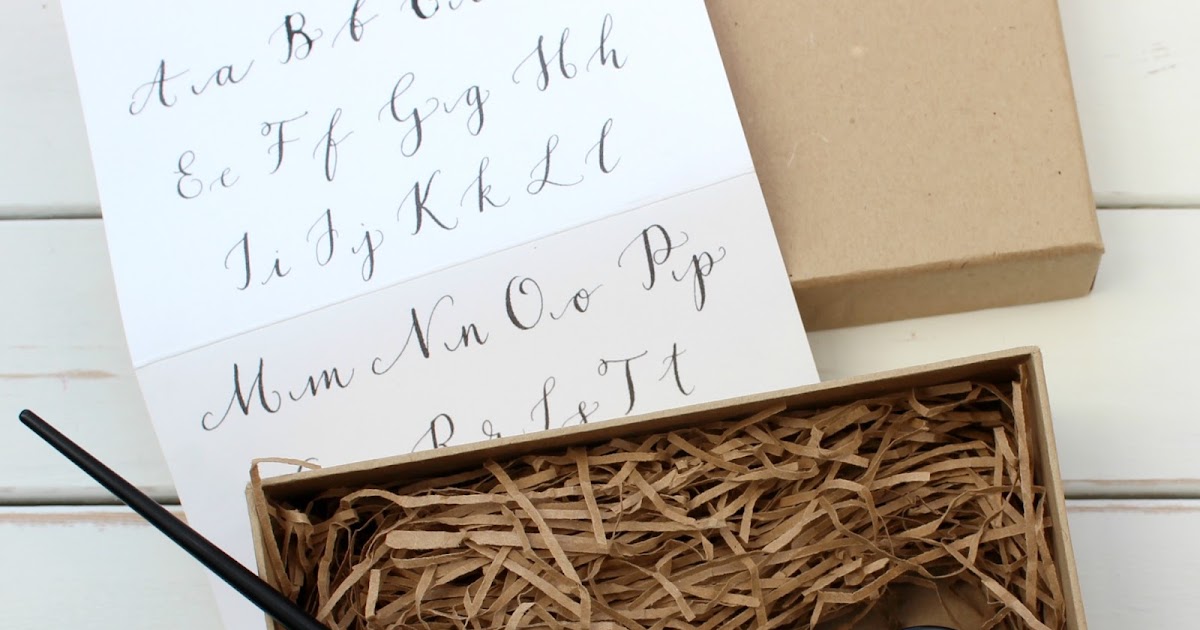 Aa Bb C
Ee Ff Gg Hh
Ii Jj Kk Ll
Mm Nn Oo Pp
Rr Ss Tt